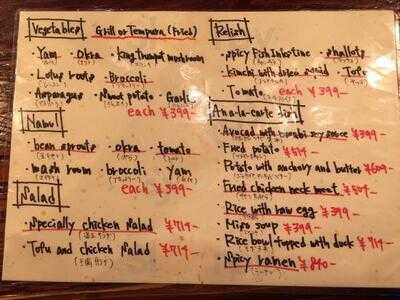 Vegetables Grill or Tempura (Fried)
・Yam ・Okra ・King trumpet mushroom
・Lotus roots ・Broccoli
・Asparagus ・Sweet potato ・Garlic
each ¥399-
Namul
・bean sprouts ・okra ・tomato
・mash room ・broccoli ・Yam
each ¥399-
Salad
・Specially chicken Salad ¥714-
・Tofu and chicken Salad ¥714-
Relish
・Spicy Fish Intestine ・shallots
・Kimchi with dried squid ・Tofu
・Tomato each ¥399-
An a-la-carte dish
・Avocado with wasabi soy sauce ¥399-
・Fried potato ¥514-
・Potato with anchovy and butter ¥609-
・Fried chicken neck meat ¥504-
・Rice with raw egg ¥399-
・Miso soup ¥399-
・Rice bowl topped with duck ¥714-
・Spicy ramen ¥840-